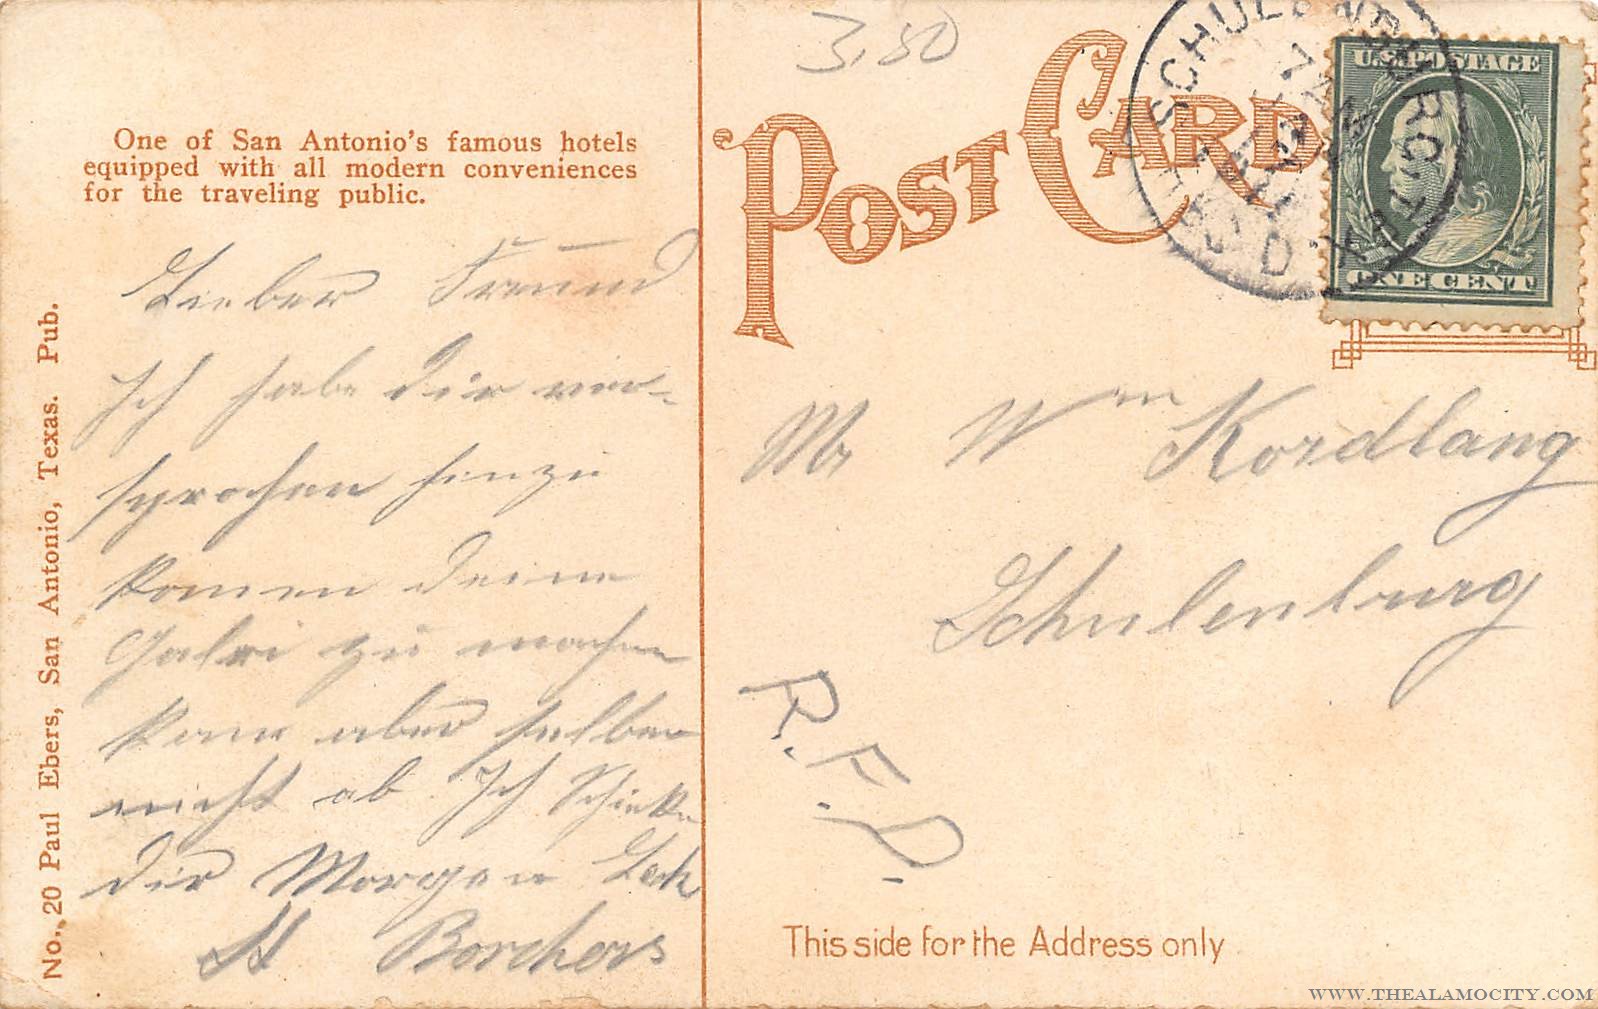 3,50
One of San Antonio's famous hotels
equipped with all modern conveniences
for the traveling public.
POST CARD
SCHULENBURG, TEX
U.S. POSTAGE
ONE CENT
Lieber Freund
Ich habe dir ver-
sprochen hinzu
komen deine
zu machen
kann aber selber
nicht ab Ich Schicke
dir Morgen
H Borchers
Mr Wm Kordlang
Schulenburg
R.F.D.
This side for the Address only
No. 20 Paul Ebers, San Antonio, Texas. Pub.
WWW.THEALAMOCITY.COM